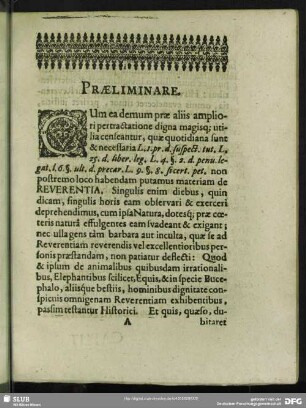 PRÆLIMINARE.
CUm ea demum præ aliis amplio-
ri pertractatione digna magisq; uti-
lia censeantur, quæ quotidiana sunt
& necessaria L.1.pr.d.suspect. tut. L.
25. d. liber. leg. L. 4. §. 2. d. penu. le-
gat. l.6. §. ult. d. precar. L. 9. §. 8. si cert. pet. non
postremo loco habendam putamus materiam de
REVERENTIA. Singulis enim diebus, quin
dicam, singulis horis eam observari & exerceri
deprehendimus, cum ipsa Natura, dotesq; præ cœ-
teris naturâ effulgentes eam svadeant & exigant;
nec ulla gens tàm barbara aut inculta, quæ se ad
Reverentiam reverendis vel excellentioribus per-
sonis præstandam, non patiatur deflecti: Qvod
& ipsum de animalibus quibusdam irrationali-
bus, Elephantibus scilicet, Equis, & in specie Buce-
phalo, aliisque bestiis, hominibus dignitate con-
spicuis omnigenam Reverentiam exhibentibus,
passim testantur Historici. Et quis, quæso, du-
A bitaret
SLUB